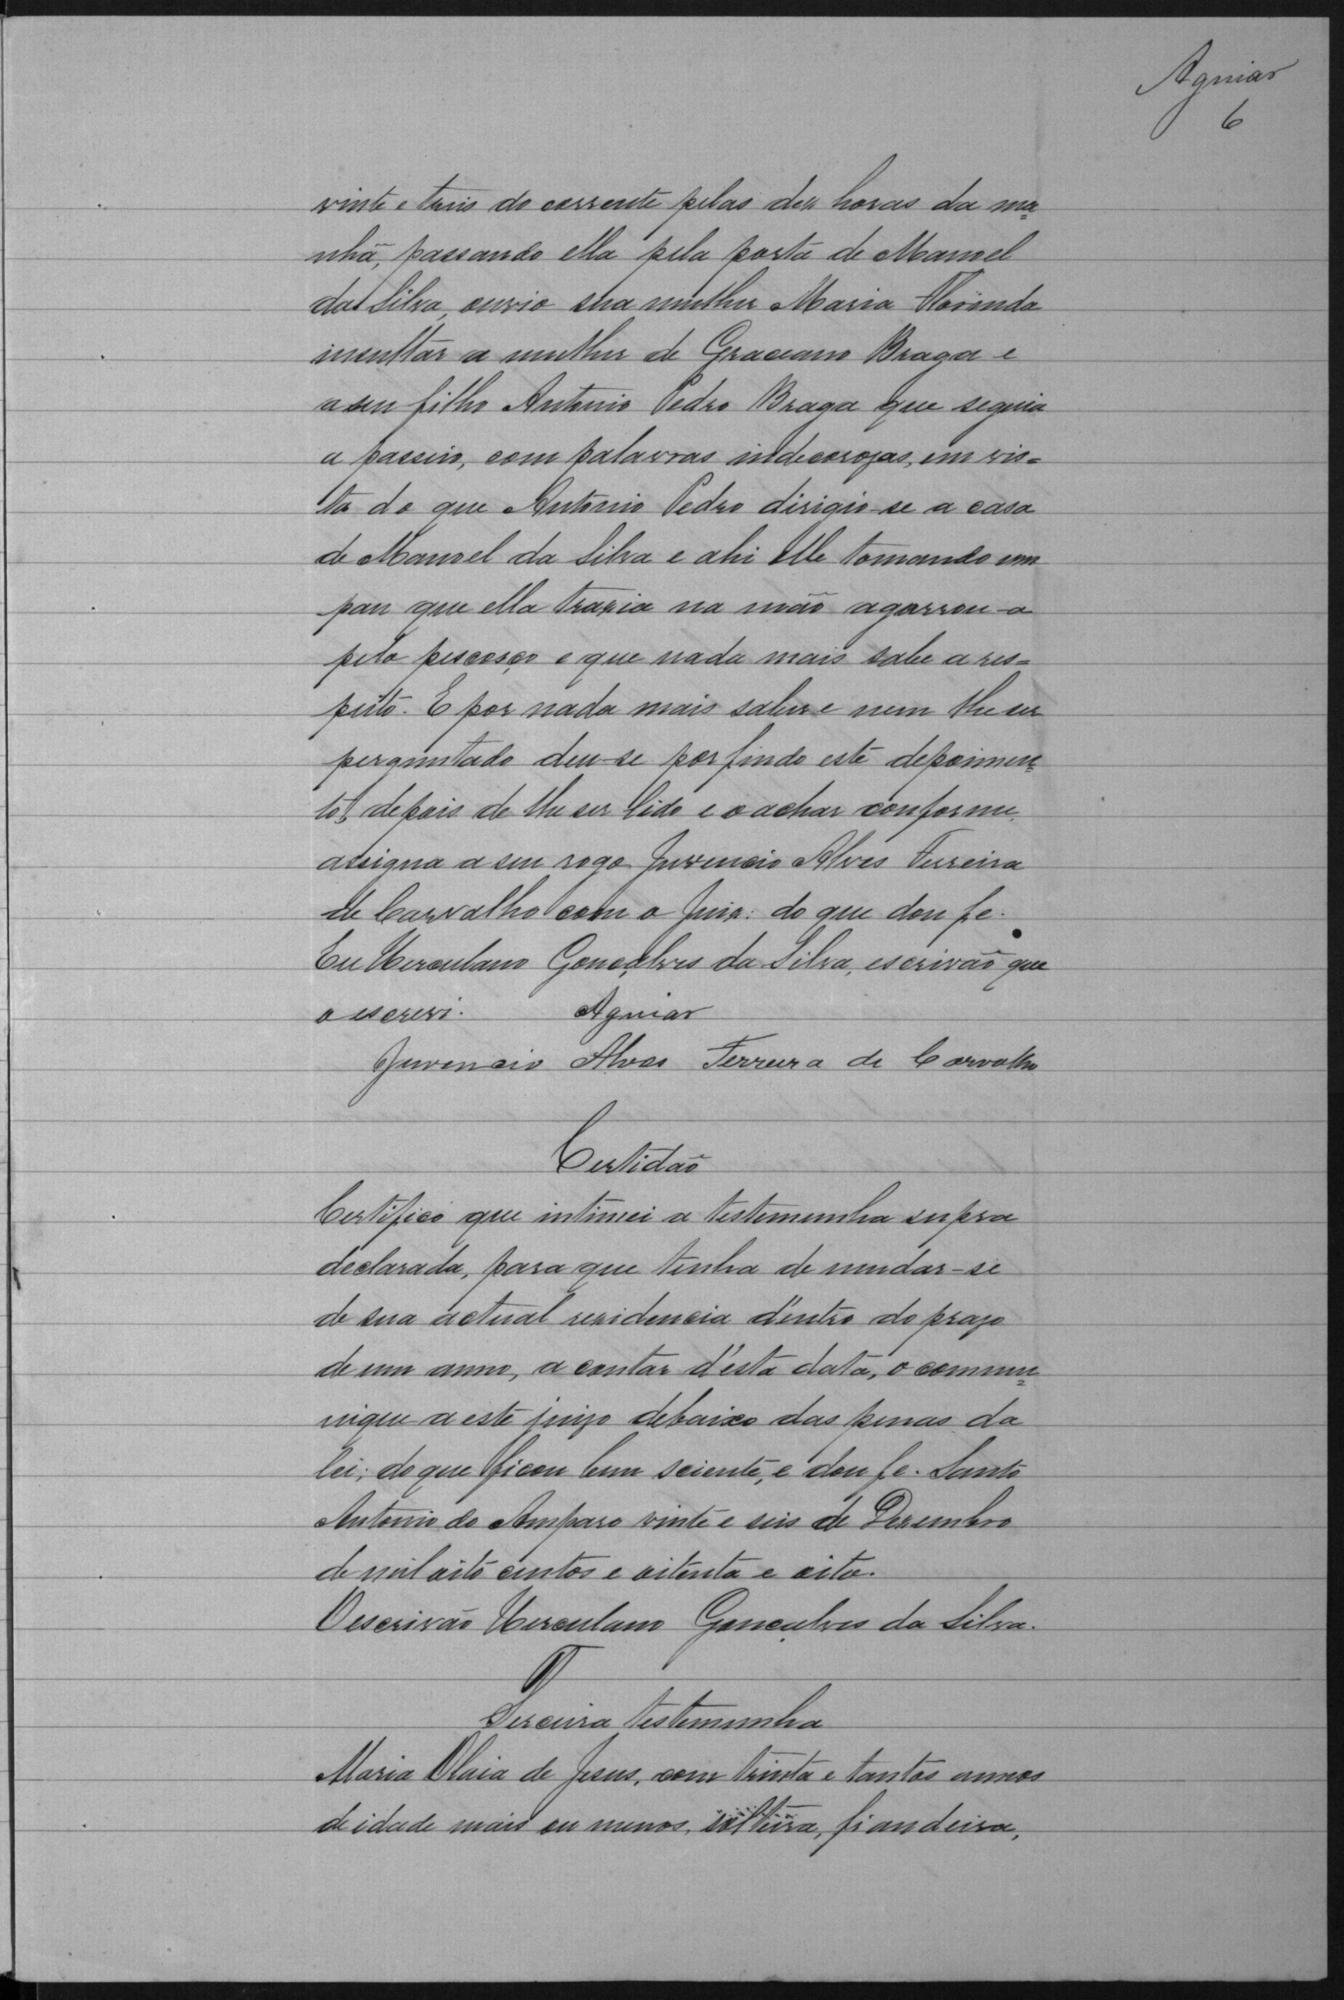 Aguiar
6
vinte e treis do corrente pelas dez horas da ma=
nhã, passando ella pela porta de Manoel
da Silva, ouvio sua mulher Maria Florinda
insultar a mulher de Graceano Braga e
a seu filho Antonio Pedro Braga que seguia
a passeio, com palavras indecorozas, em vis=
ta do que Antonio Pedro dirigio-se a casa
de Manoel da Silva e ahi elle tomando um
pau que ella trazia na mão agarrou-a
pelo pescosço e que nada mais sabe a res=
peito. E por nada mais saber e nem lhe ser
perguntado deu-se por findo este depoimen=
to, depois de lhe ser lido e o achar conforme,
assigna a seu rogo Juvencio Alves Ferreira
de Carvalho com o Juiz: do que dou fe.
Eu Herculano Gonçalves da Silva, escrivão que
o escrevi. Aguiar
Juvencio Alves Ferreira de Carvalho
Certidão
Certifico que intimei a testemunha supra
declarada, para que tenha de mudar-se
de sua actual rezidencia d'entro do prazo
de um anno, a contar d'esta data, o commu=
nique a este juizo debaixo das penas da
lei; do que ficou bem sciente, e dou fe. Santo
Antonio do Amparo vinte e seis de Dezembro
de mil oito centos e oitenta e oito.
O escrivão Herculano Gonçalves da Silva.
Terceira testemunha
Maria Olaia de Jesus, com trinta e tantos annos
de idade mais ou menos, solteira, fiandeira,